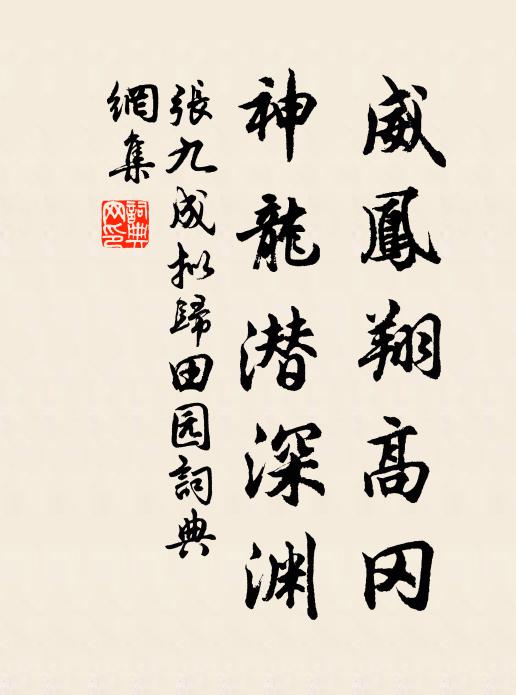 威鳳翔高冈
神龍潜深渊
張九成拟歸田园詞典
網集
詞典
网印